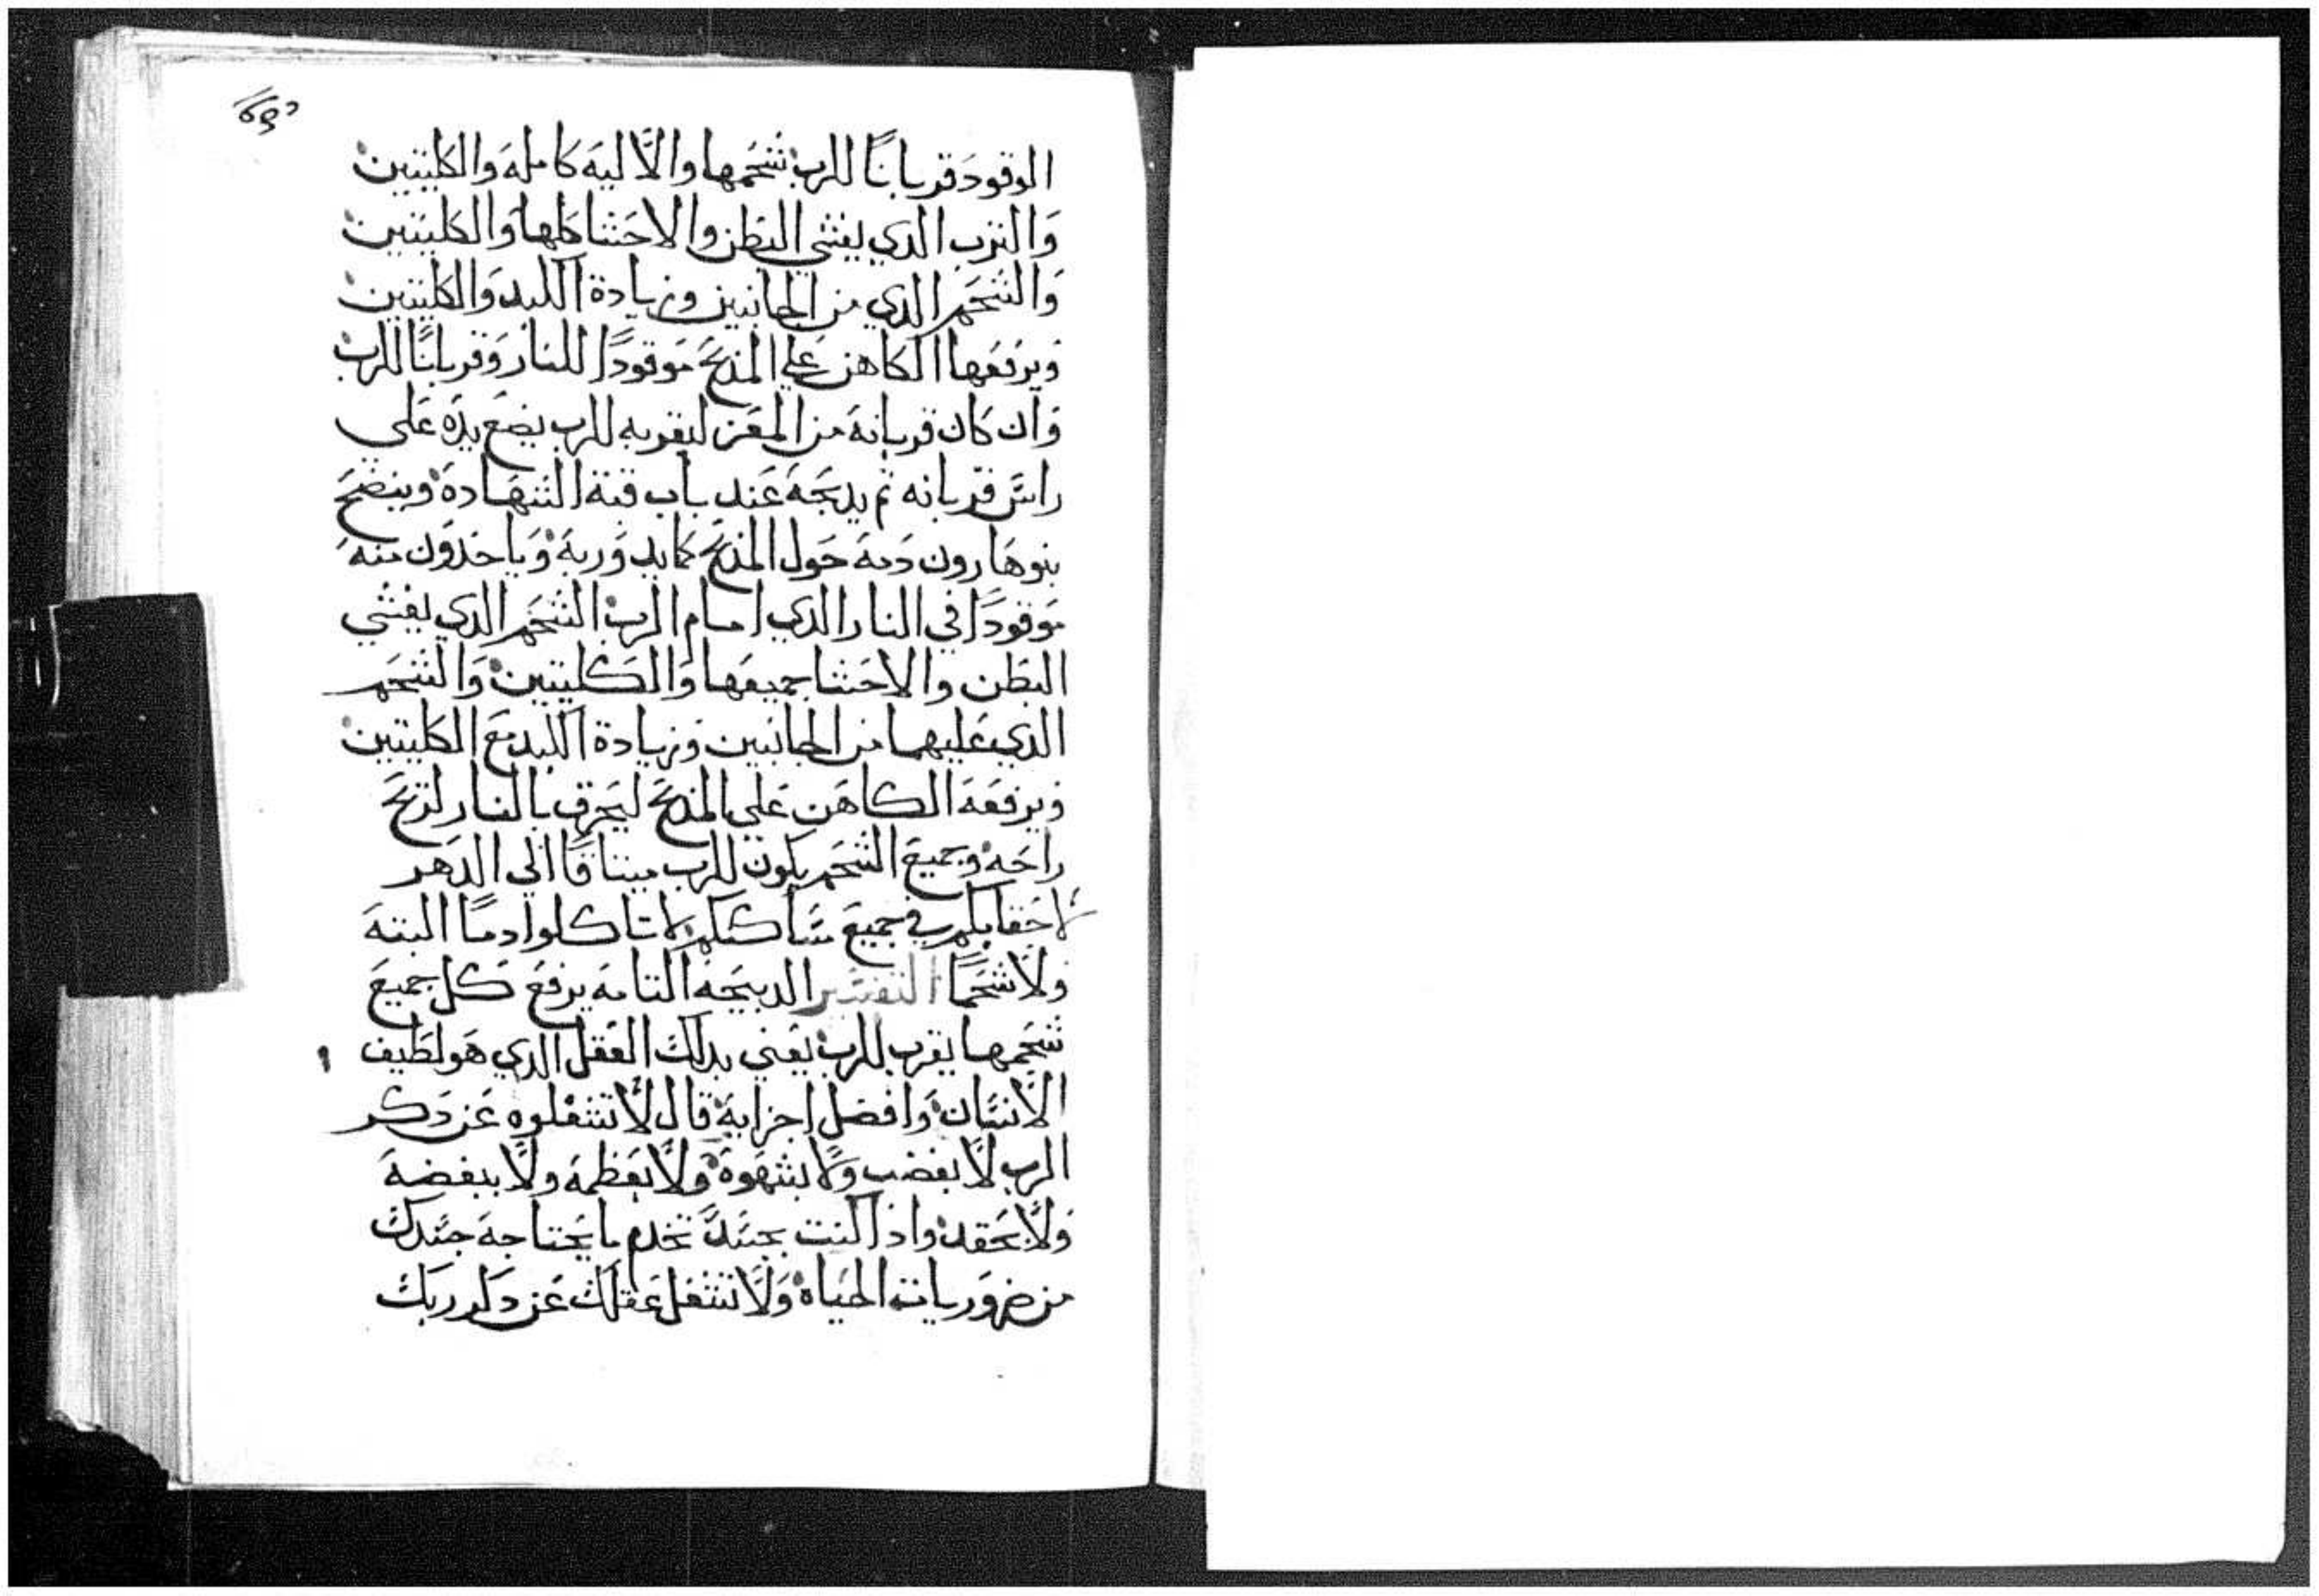 الوقود قربانًا للرب شحمها والالية كاملة والكليتين
والترب الدي يغشي البطن والاحشا كلها والكليتين
والشحم الدي من الجانبين وزيادة الكبد والكليتين
ويرفعها الكاهن علي المذبح موقودًا للنار وقربانًا للرب
وان كان قربانه من المعز ليقربه للرب يضع يده علي
راس قربانه ثم يدبحه عند باب قبة الشهادة وينضح
بنو هارون دمه حول المذبح كما يدوربه وياخدون منه
موقودًا في النار الدي امام الرب الشحم الدي يغشي
البطن والاحشا جميعها والكليتين والشحم
الدي عليهما من الجانبين وزيادة الكبد مع الكليتين
ويرفعه الكاهن علي المذبح ليحرق بالنار لتريح
راحه وجميع الشحم يكون للرب ميتاقا الي الدهر
لاحقابكم في جميع مساكنكم لا تاكلوا دمًا البته
ولا شحمًا التفسير الدبيحه التامه يرفع كل جميع
شحمها يقرب للرب يعني بدلك العقل الدي هو لطيف
الانسان وافضل اجزايه قال لا تشغلوه عن دكر
الرب لا بغضب ولا بشهوة ولا بعظمة ولا ببغضة
ولا بحقد واذا كنت بجسدك تخدم ما يحتاجه جسدك
من ضروريات الحياة ولا تشغل عقلك عن دكر ربك